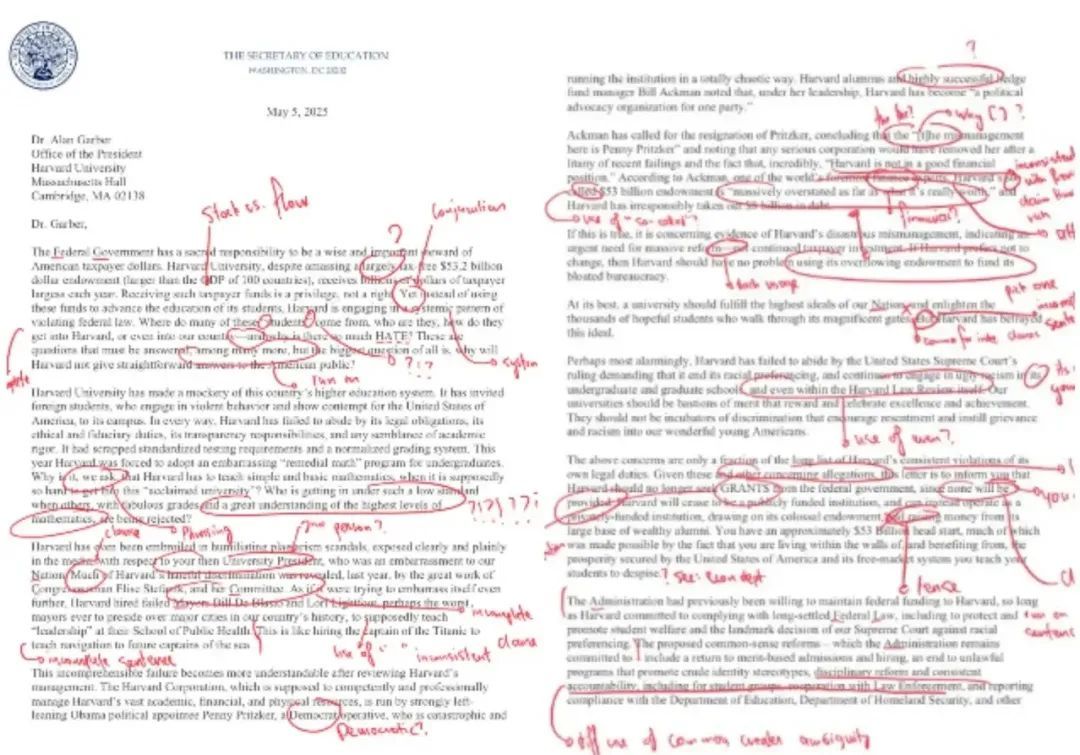 THE SECRETARY OF EDUCATION
WASHINGTON, DC 20202
May 5, 2025
Dr. Alan Garber
Office of the President
Harvard University
Massachusetts Hall
Cambridge, MA 02138
Dr. Garber,
Stock vs. flow
Conjunction
?
The Federal Government has a sacred responsibility to be a wise and important steward of
American taxpayer dollars. Harvard University, despite amassing a largely tax-free $53.2 billion
dollar endowment (larger than the GDP of 100 countries), receives billions of dollars of taxpayer
largess each year. Receiving such taxpayer funds is a privilege, not a right. Yet instead of using
these funds to advance the education of its students, Harvard is engaging in a systemic pattern of
violating federal law. Where do many of these students come from, who are they, how do they
get into Harvard, or even into our country—and why is there so much HATE? These are
questions that must be answered, among many more, but the biggest question of all is, why will
Harvard not give straightforward answers to the American public?
system
? ! ?
Harvard University has made a mockery of this country's higher education system. It has invited
foreign students, who engage in violent behavior and show contempt for the United States of
America, to its campus. In every way, Harvard has failed to abide by its legal obligations, its
ethical and fiduciary duties, its transparency responsibilities, and any semblance of academic
rigor. It had scrapped standardized testing requirements and a normalized grading system. This
year Harvard was forced to adopt an embarrassing "remedial math" program for undergraduates.
Why is it, we ask, that Harvard has to teach simple and basic mathematics, when it is supposedly
so hard to get into this "acclaimed university"? Who is getting in under such a low standard
when others, with fabulous grades and a great understanding of the highest levels of
mathematics, are being rejected?
clause
phrasing
person?
Harvard has even been embroiled in humiliating plagiarism scandals, exposed clearly and plainly
in the media with respect to your then University President, who was an embarrassment to our
Nation. Much of Harvard's hateful discrimination was revealed, last year, by the great work of
Congresswoman Elise Stefanik, and her Committee. As if it were trying to embarrass itself even
further, Harvard hired failed Mayors Bill De Blasio and Lori Lightfoot, perhaps the worst
mayors ever to preside over major cities in our country's history, to supposedly teach
"leadership" at their School of Public Health. This is like hiring the captain of the Titanic to
teach navigation to future captains of the sea.
incomplete
clause
incomplete sentence
use of " "
inconsistent
This incomprehensible failure becomes more understandable after reviewing Harvard's
management. The Harvard Corporation, which is supposed to competently and professionally
manage Harvard's vast academic, financial, and physical resources, is run by strongly left-
leaning Obama political appointee Penny Pritzker, a Democrat operative, who is catastrophic and
Democratic?
?
running the institution in a totally chaotic way. Harvard alumnus and highly successful hedge
fund manager Bill Ackman noted that, under her leadership, Harvard has become "a political
advocacy organization for one party."
the the?
why [ ] ?
Ackman has called for the resignation of Pritzker, concluding that the "[t]he mismanagement
here is Penny Pritzker" and noting that any serious corporation would have removed her after a
litany of recent failings and the fact that, incredibly, "Harvard is not in a good financial
position." According to Ackman, one of the world's foremost finance experts, Harvard's so-
called $53 billion endowment is "massively overstated as far as what it's really worth," and
Harvard has irresponsibly taken on $8 billion in debt.
inconsistent
use of "so-called"
If this is true, it is concerning evidence of Harvard's disastrous mismanagement, indicating an
urgent need for massive reform—not continued taxpayer investment. If Harvard prefers not to
change, then Harvard should have no problem using its overflowing endowment to fund its
bloated bureaucracy.
dash usage
pick one
At its best, a university should fulfill the highest ideals of our Nation, and enlighten the
thousands of hopeful students who walk through its magnificent gates. But Harvard has betrayed
this ideal.
comma for into clauses
Perhaps most alarmingly, Harvard has failed to abide by the United States Supreme Court's
ruling demanding that it end its racial preferencing, and continues to engage in ugly racism in its
undergraduate and graduate schools, and even within the Harvard Law Review itself. Our
universities should be bastions of merit that reward and celebrate excellence and achievement.
They should not be incubators of discrimination that encourage resentment and instill grievance
and racism into our wonderful young Americans.
use of even?
The above concerns are only a fraction of the long list of Harvard's consistent violations of its
own legal duties. Given these and other concerning allegations, this letter is to inform you that
Harvard should no longer seek GRANTS from the federal government, since none will be
provided. Harvard will cease to be a publicly funded institution, and can instead operate as a
privately-funded institution, drawing on its colossal endowment, and raising money from its
large base of wealthy alumni. You have an approximately $53 Billion head start, much of which
was made possible by the fact that you are living within the walls of, and benefiting from, the
prosperity secured by the United States of America and its free-market system you teach your
students to despise.
? See: Econ dept
tense
The Administration had previously been willing to maintain federal funding to Harvard, so long
as Harvard committed to complying with long-settled Federal Law, including to protect and
promote student welfare and the landmark decision of our Supreme Court against racial
preferencing. The proposed common-sense reforms – which the Administration remains
committed to – include a return to merit-based admissions and hiring, an end to unlawful
programs that promote crude identity stereotypes, disciplinary reform and consistent
accountability, including for student groups, cooperation with Law Enforcement, and reporting
compliance with the Department of Education, Department of Homeland Security, and other
off use of commas creates ambiguity